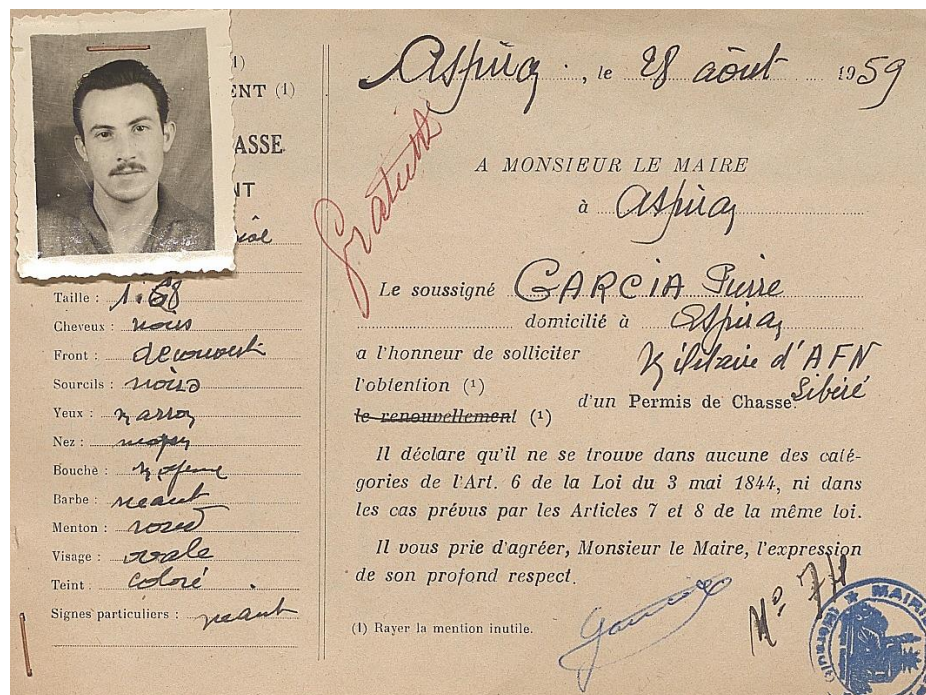 1)
ENT (1)
ASSE
NT
Taille : 1.68
Cheveux : noirs
Front : découvert
Sourcils : noirs
Yeux : Marron
Nez : moyen
Bouche : Moyenne
Barbe : néant
Menton : rond
Visage : ovale
Teint : coloré
Signes particuliers : néant
Aspiran, le 28 août 1959
Gratuité
A MONSIEUR LE MAIRE
à Aspiran
Le soussigné GARCIA Pierre
domicilié à Aspiran
a l'honneur de solliciter Militaire d'AFN
Libéré
l'obtention (1)
d'un Permis de Chasse.
le renouvellement (1)
Il déclare qu'il ne se trouve dans aucune des caté-
gories de l'Art. 6 de la Loi du 3 mai 1844, ni dans
les cas prévus par les Articles 7 et 8 de la même loi.
Il vous prie d'agréer, Monsieur le Maire, l'expression
de son profond respect.
(1) Rayer la mention inutile.
MAIRIE